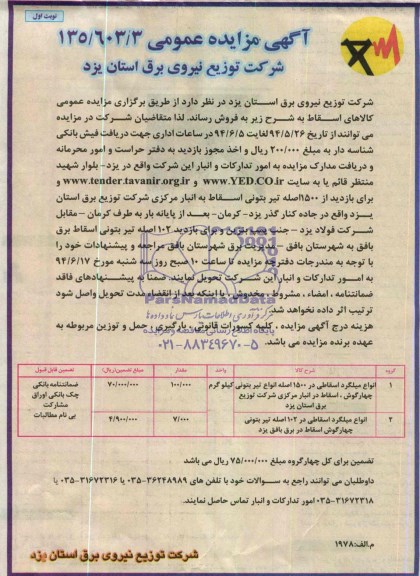 نوبت اول
آگهی مزایده عمومی ۱۳۵/۶۰۳/۳
شرکت توزیع نیروی برق استان یزد
شرکت توزیع نیروی برق استان یزد در نظر دارد از طریق برگزاری مزایده عمومی
کالاهای اسقاط به شرح زیر به فروش رساند. لذا متقاضیان شرکت در مزایده
می توانند از تاریخ ۹۴/۵/۲۶ لغایت ۹۴/۶/۵ در ساعات اداری جهت دریافت فیش بانکی
شناسه دار به مبلغ ۲۰۰/۰۰۰ ریال و اخذ مجوز بازدید به دفتر حراست و امور محرمانه
و دریافت مدارک مزایده به امور تدارکات و انبار این شرکت واقع در یزد- بلوار شهید
منتظر قائم یا به سایت www.YED.CO.ir و www.tender.tavanir.org.ir و
برای بازدید از ۱۵۰۰ اصله تیر بتونی اسقاط به انبار مرکزی شرکت توزیع برق استان
یزد واقع در جاده کنار گذر یزد- کرمان- بعد از پایانه بار به طرف کرمان – مقابل
شرکت فولاد یزد – جنب پمپ بنزین و برای بازدید ۱۰۲ اصله تیر بتونی اسقاط برق
بافق به شهرستان بافق – مدیریت برق شهرستان بافق مراجعه و پیشنهادات خود را
با توجه به مندرجات دفترچه مزایده تا ساعت ۱۰ صبح روز سه شنبه مورخ ۹۴/۶/۱۷
به امور تدارکات و انبار این شرکت تحویل نمایند. ضمنا به پیشنهادهای فاقد
ضمانتنامه ، امضاء ، مشروط ، مخدوش ، یا اینکه بعد از انقضاء مدت تحویل واصل شود
ترتیب اثر داده نخواهد شد.
هزینه درج آگهی مزایده ، کلیه کسورات قانونی ، بارگیری ، حمل و توزین مربوطه به
عهده برنده مزایده می باشد.
ParsNamadData
۰۲۱-۸۸۳۴۹۶۷۰-۵
گروه شرح کالا واحد مقدار مبلغ تضمین(ریال) تضمین قابل قبول
۱ انواع میلگرد اسقاطی در ۱۵۰۰ اصله انواع تیر بتونی کیلو گرم ۱۰۰/۰۰۰ ۷۰/۰۰۰/۰۰۰ ضمانتنامه بانکی
چهارگوش ، اسقاط در انبار مرکزی شرکت توزیع چک بانکی اوراق
برق استان یزد مشارکت
۲ انواع میلگرد اسقاطی در ۱۰۲ اصله تیر بتونی ۷/۰۰۰ ۴/۹۰۰/۰۰۰ بی نام مطالبات
چهارگوش اسقاط در برق بافق یزد
تضمین برای کل چهار گروه مبلغ ۷۵/۰۰۰/۰۰۰ ریال می باشد
داوطلبان می توانند راجع به سوالات خود با تلفن های ۳۶۲۴۸۹۸۹-۰۳۵ یا ۳۱۶۷۲۳۱۶-۰۳۵ یا
۳۱۶۷۲۳۱۸-۰۳۵ امور تدارکات و انبار تماس حاصل نمایند.
م.الف:۱۹۷۸
شرکت توزیع نیروی برق استان یزد